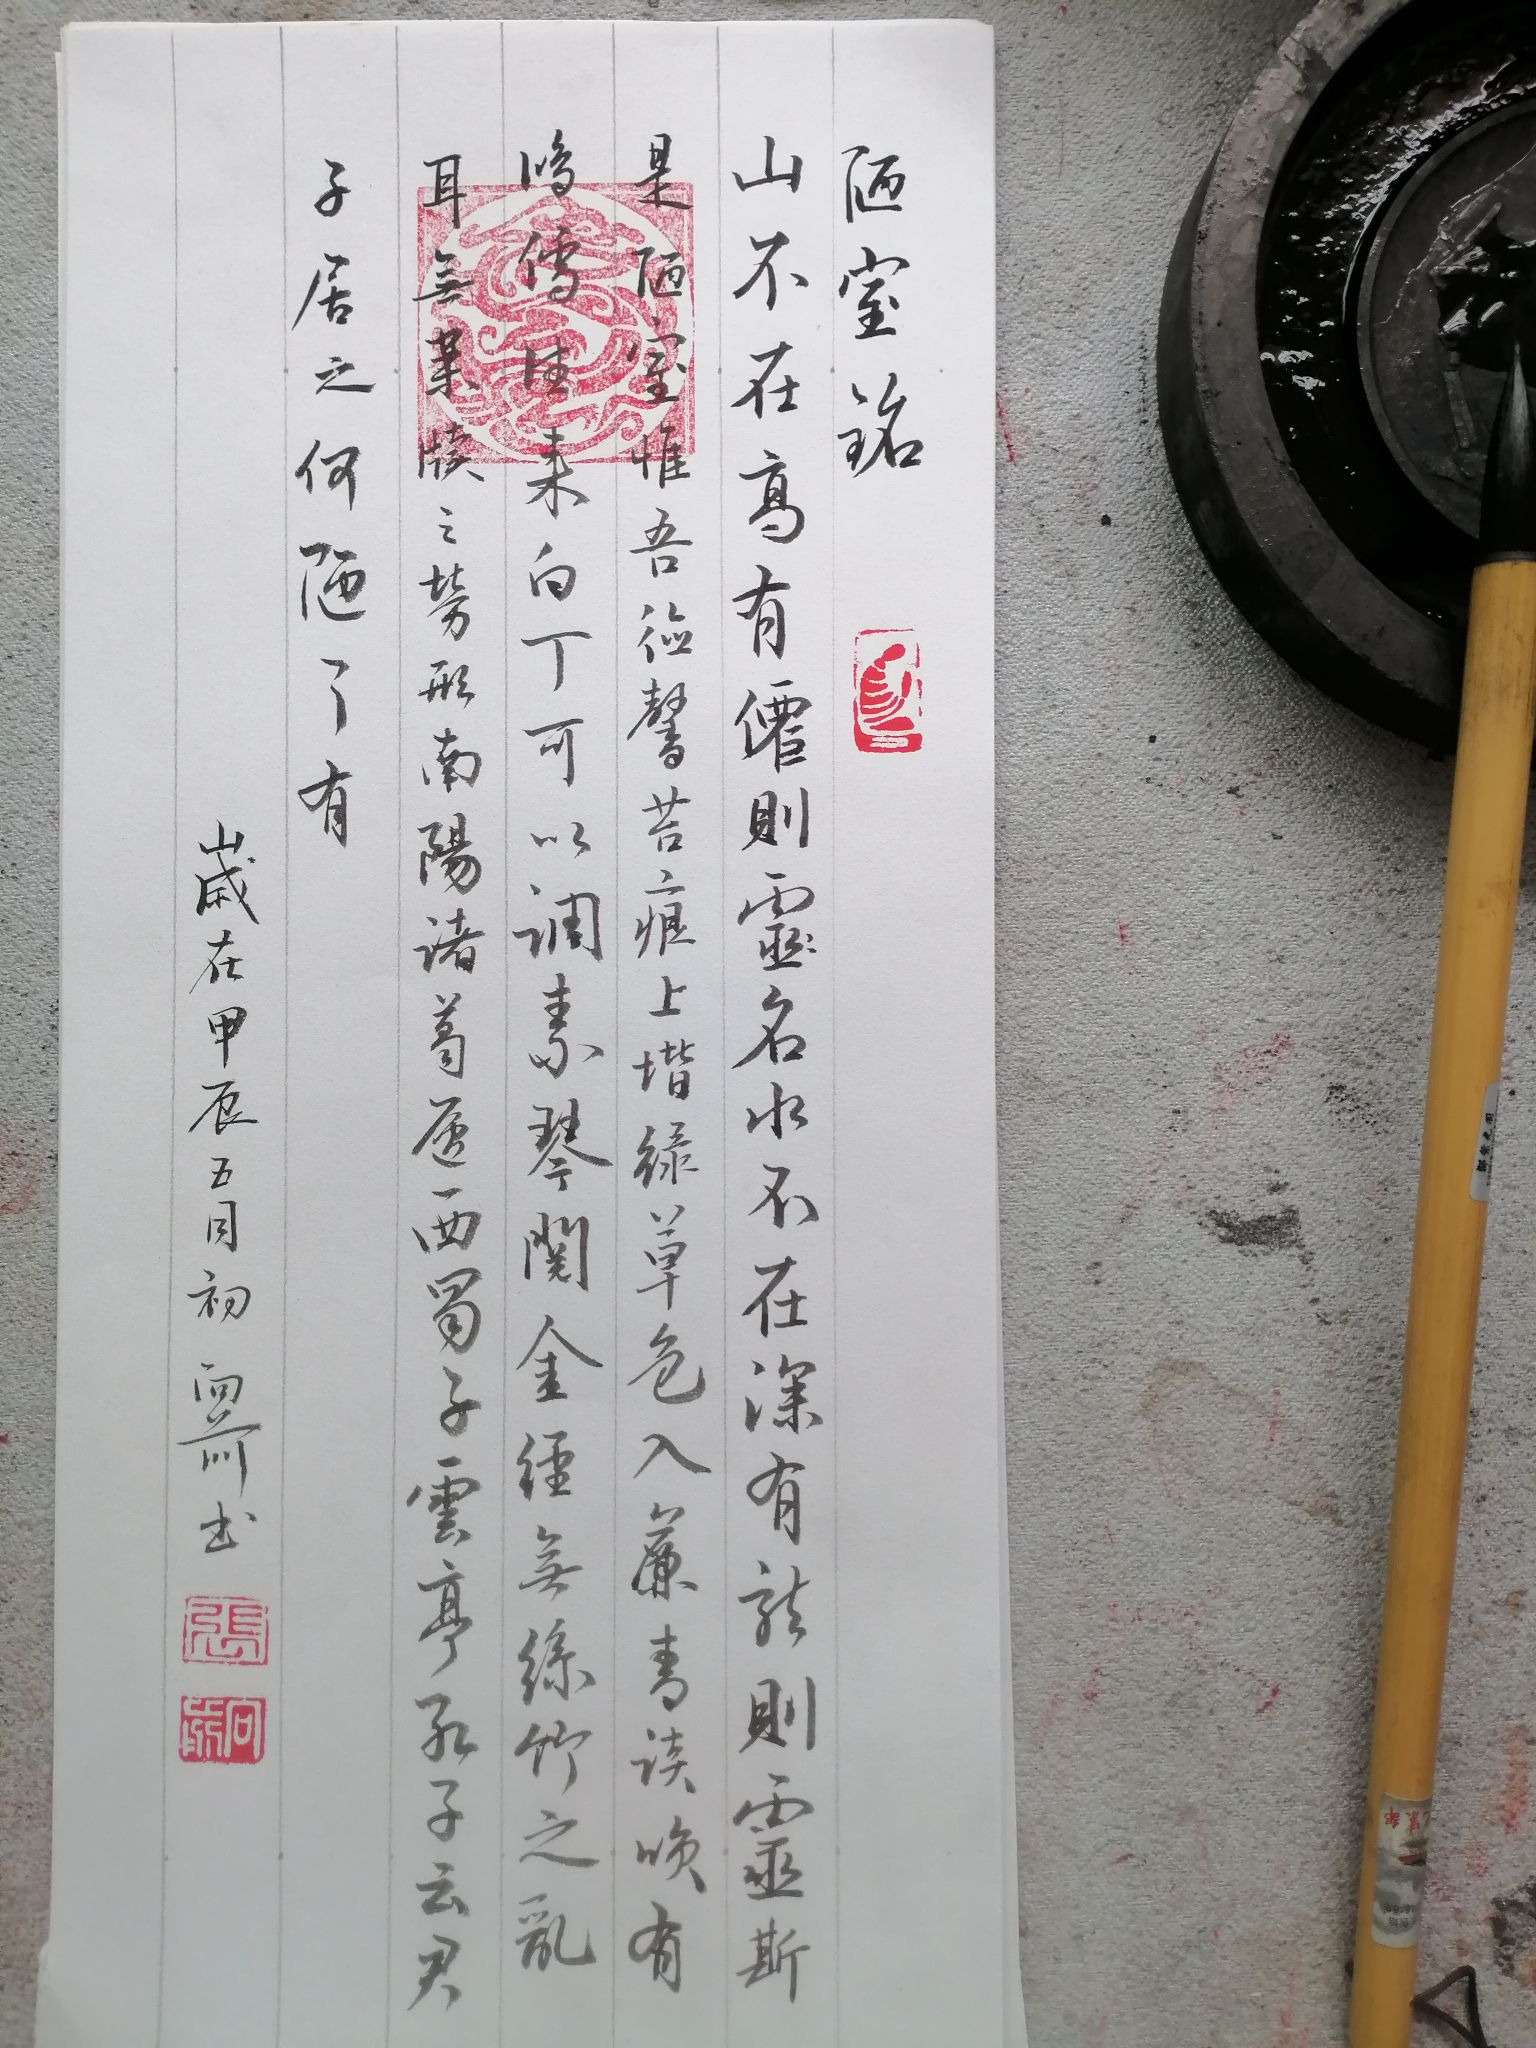 陋室銘
山不在高有僊則靈名水不在深有龍則靈斯
是陋室惟吾德馨苔痕上堦綠草色入簾青談喚有
鴻儒往來白丁可以調素琴閱金經無絲竹之亂
耳無案牘之勞形南陽諸葛廬西蜀子雲亭孔子云君
子居之何陋了有
歲在甲辰五月初 書
張